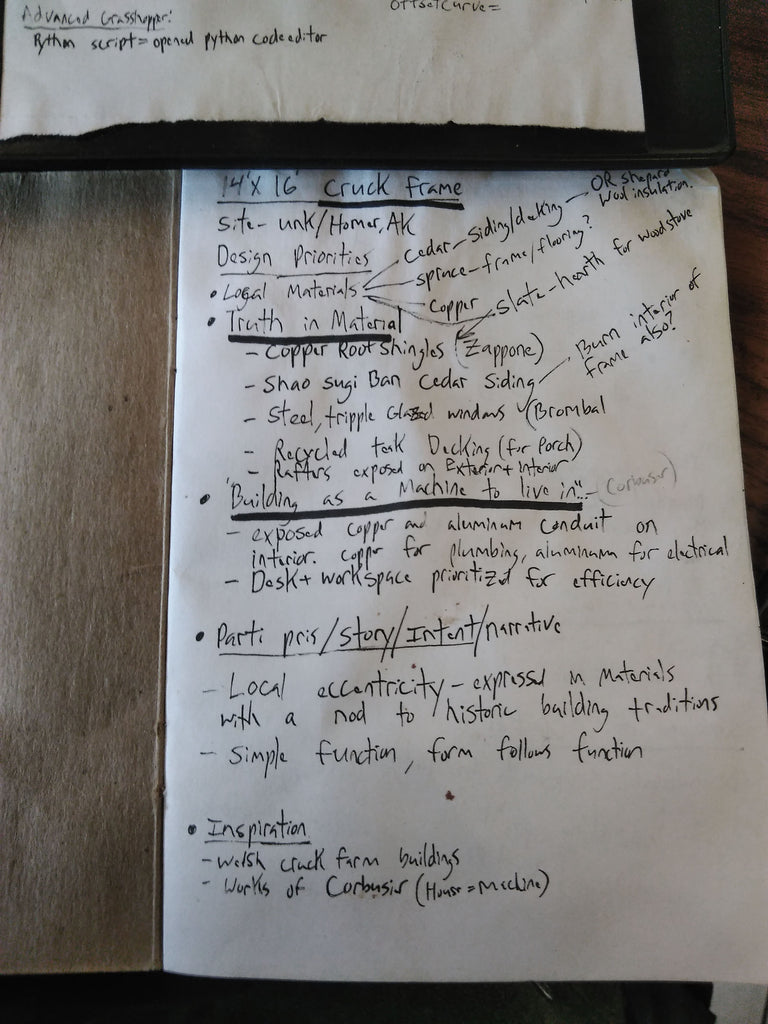 Advanced Grasshopper:
Python script = opened python code editor
OffsetCurve =
14' X 16' Cruck frame
Site - unk/Homer, AK
Design Priorities
• Logal Materials
Cedar - siding/decking - OR Shepard
Wool insulation.
spruce - frame/flooring?
Copper
Slate - hearth for woodstove
• Truth in Material
- Copper Roof Shingles (Zappone)
- Shao Sugi Ban Cedar Siding
Burn interior of
frame also?
- Steel, tripple Glazed windows (Brombal
- Recycled teak Decking (for Porch)
- Rafters exposed on Exterior + Interior
• "Building as a Machine to live in" - (Corbusier)
- exposed copper and aluminum conduit on
interior. copper for plumbing, aluminum for electrical
- Desk + workspace prioritized for efficiency
• Parti pris/Story/Intent/narrative
- Local eccentricity - expressed in Materials
with a nod to historic building traditions
- Simple function, form follows function
• Inspiration
- Welsh cruck farm buildings
- Works of Corbusir (House = Machine)